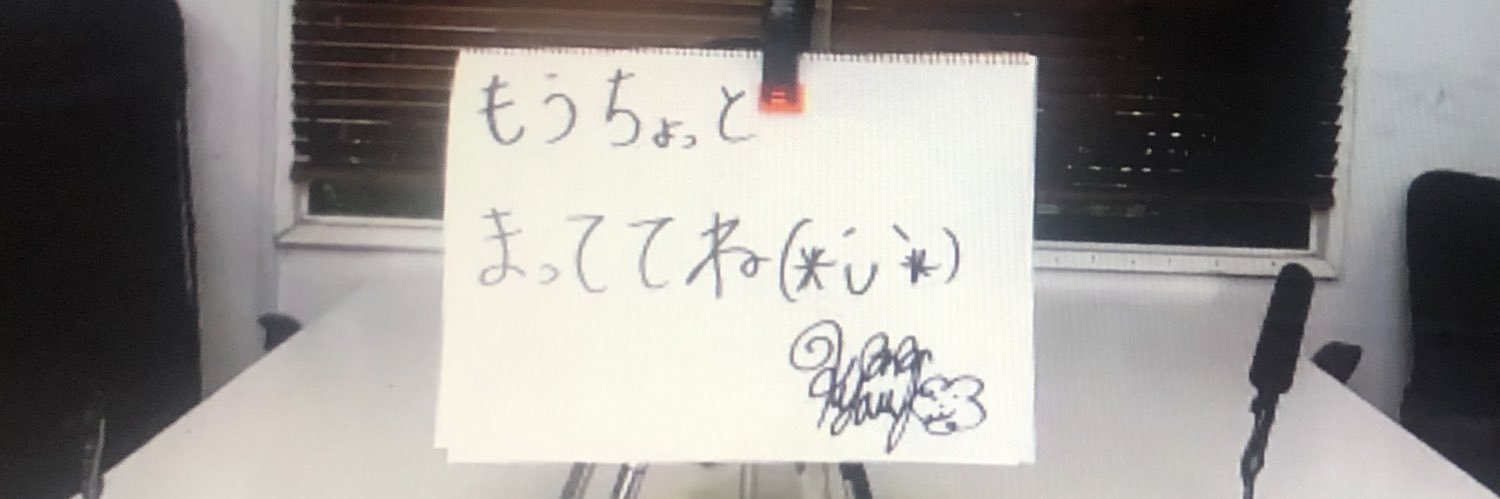 もうちょっと
まっててね(*´∪`*)